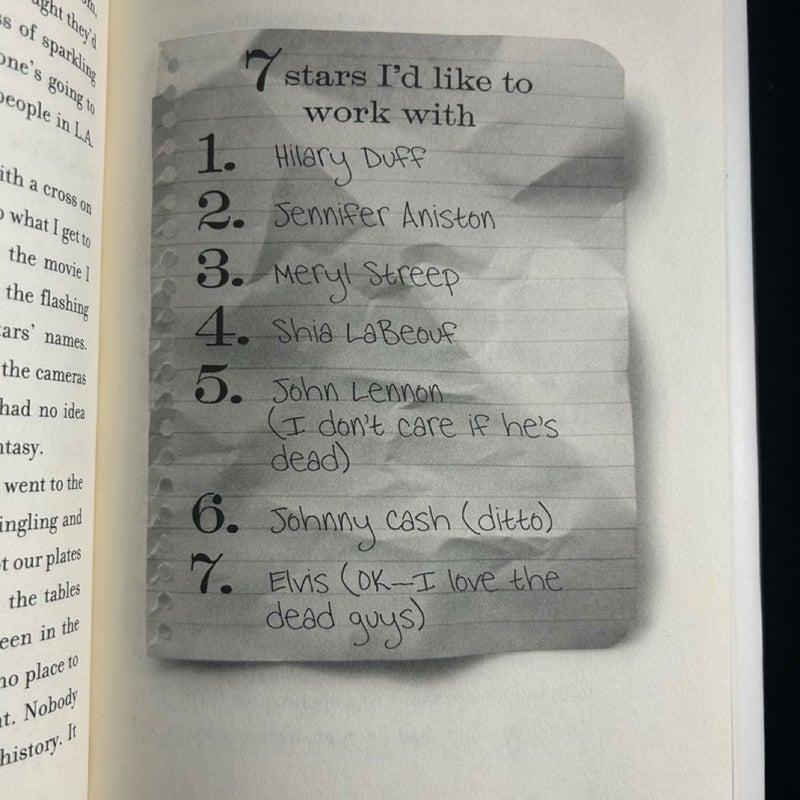 ught they'd
ss of sparkling
one's going to
people in L.A.
ith a cross on
o what I get to
the movie I
the flashing
ars' names.
the cameras
had no idea
ntasy.
went to the
ingling and
t our plates
the tables
een in the
no place to
nt. Nobody
history. It
7 stars I'd like to
work with
1. Hilary Duff
2. Jennifer Aniston
3. Meryl Streep
4. Shia LaBeouf
5. John Lennon
(I don't care if he's
dead)
6. Johnny Cash (ditto)
7. Elvis (OK—I love the
dead guys)